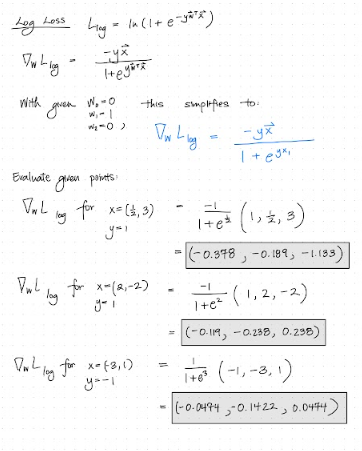 Log Loss L_log = ln(1 + e^{-y w⃗ᵀx⃗})
∇_w L_log = -yx⃗ / (1+e^{y w⃗ᵀx⃗})
With given w₀=0 this simplifies to:
w₁=1
w₂=0 ,
∇_w L_log = -yx⃗ / (1 + e^{yx₁})
Evaluate given points:
∇_w L_log for x=(½, 3) = -1 / (1+e^{½}) (1, ½, 3)
y=1
= (-0.378, -0.189, -1.133)
∇_w L_log for x=(2,-2) = -1 / (1+e²) (1, 2, -2)
y=1
= (-0.119, -0.238, 0.238)
∇_w L_log for x=(-3,1) = 1 / (1+e³) (-1, -3, 1)
y=-1
= (-0.0474, -0.1422, 0.0474)